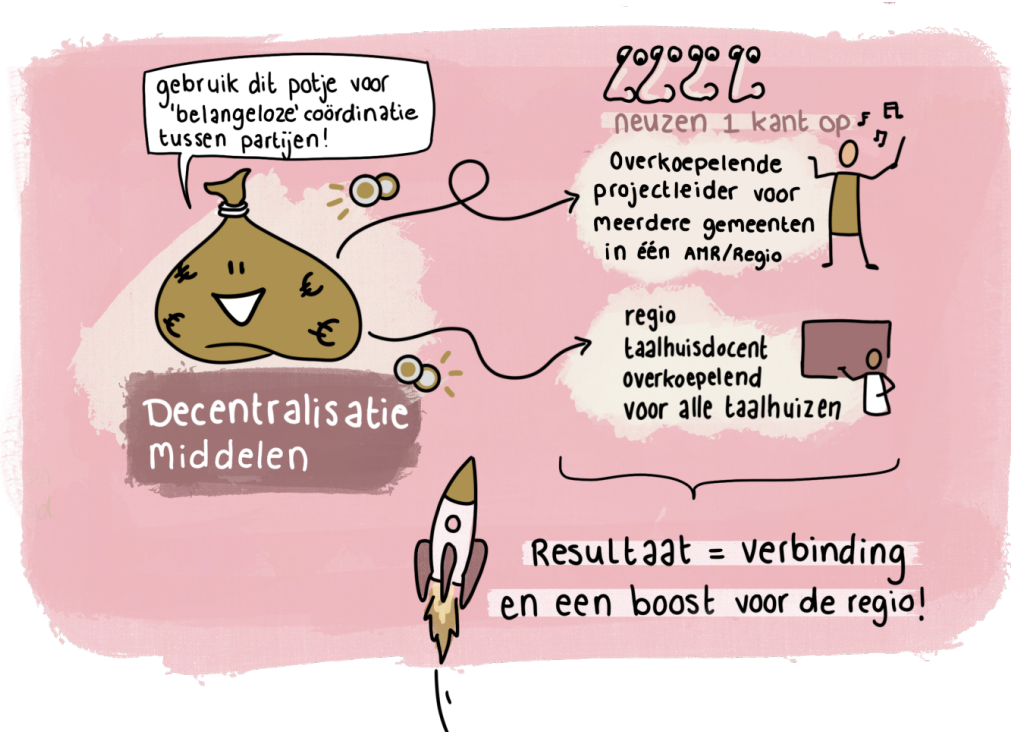 gebruik dit potje voor
'belangeloze' coördinatie
tussen partijen!
Decentralisatie
middelen
neuzen 1 kant op
Overkoepelende
projectleider voor
meerdere gemeenten
in één AMR/Regio
regio
taalhuisdocent
overkoepelend
voor alle taalhuizen
Resultaat = verbinding
en een boost voor de regio!